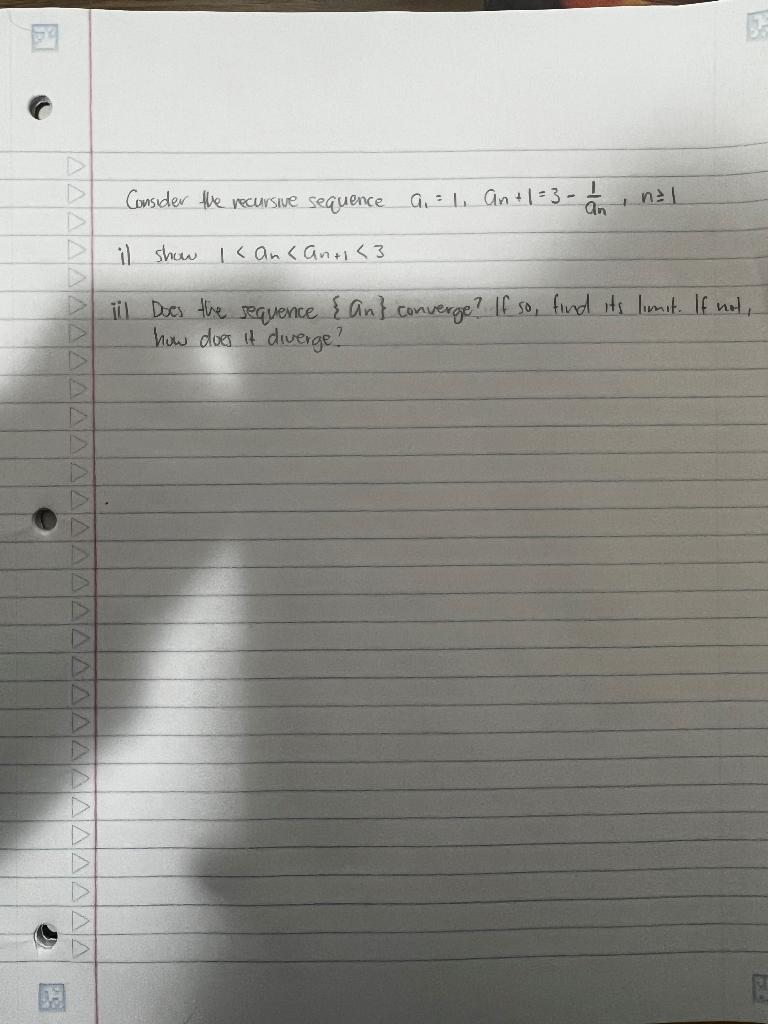 Consider the recursive sequence a₁ = 1, an+1 = 3 - 1/an, n≥1
i) show 1 < an < an+1 < 3
ii) Does the sequence {an} converge? If so, find its limit. If not,
how does it diverge?